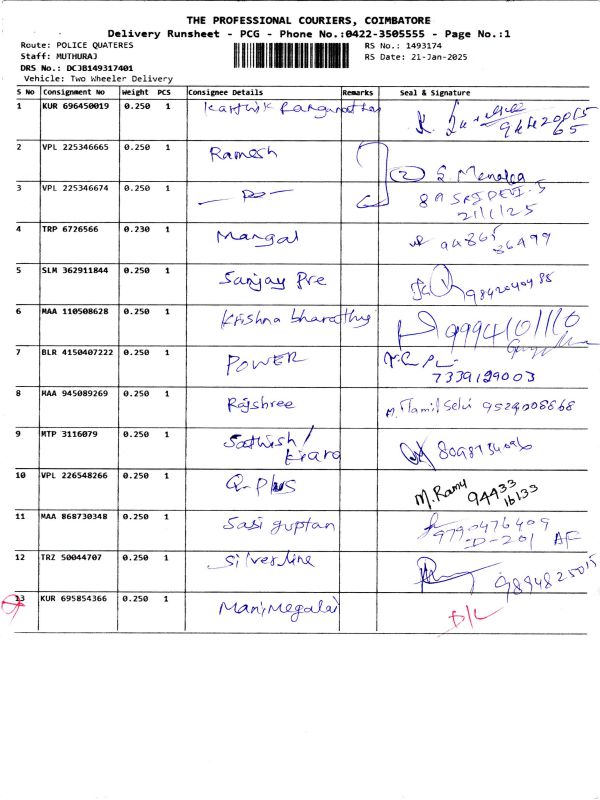 THE PROFESSIONAL COURIERS, COIMBATORE
Delivery Runsheet - PCG - Phone No.:0422-3505555 - Page No.:1
Route: POLICE QUATERES RS No.: 1493174
Staff: MUTHURAJ RS Date: 21-Jan-2025
DRS No.: DCJB149317401
Vehicle: Two Wheeler Delivery
S No Consignment No Weight PCS Consignee Details Remarks Seal & Signature
1 KUR 696450019 0.250 1 Karthik
2 VPL 225346665 0.250 1 Ramesh
2 S. Menaka
3 VPL 225346674 0.250 1
21/1/25
4 TRP 6726566 0.230 1 Mangal
5 SLM 362911844 0.250 1 Sanjay Pre
6 MAA 110508628 0.250 1 Krishna bharathy
7 BLR 4150407222 0.250 1 POWER
7339129003
8 MAA 945089269 0.250 1 Rajshree M. Tamil Selvi 9529008868
9 MTP 3116079 0.250 1 Sathish/
Kiara
10 VPL 226548266 0.250 1 Q-Plus M. Ramy 94433
16133
11 MAA 868730348 0.250 1 Sasi guptan 9790476409
D-201 AF
12 TRZ 50044707 0.250 1 Silverline
13 KUR 695854366 0.250 1 Manimegalai D/L